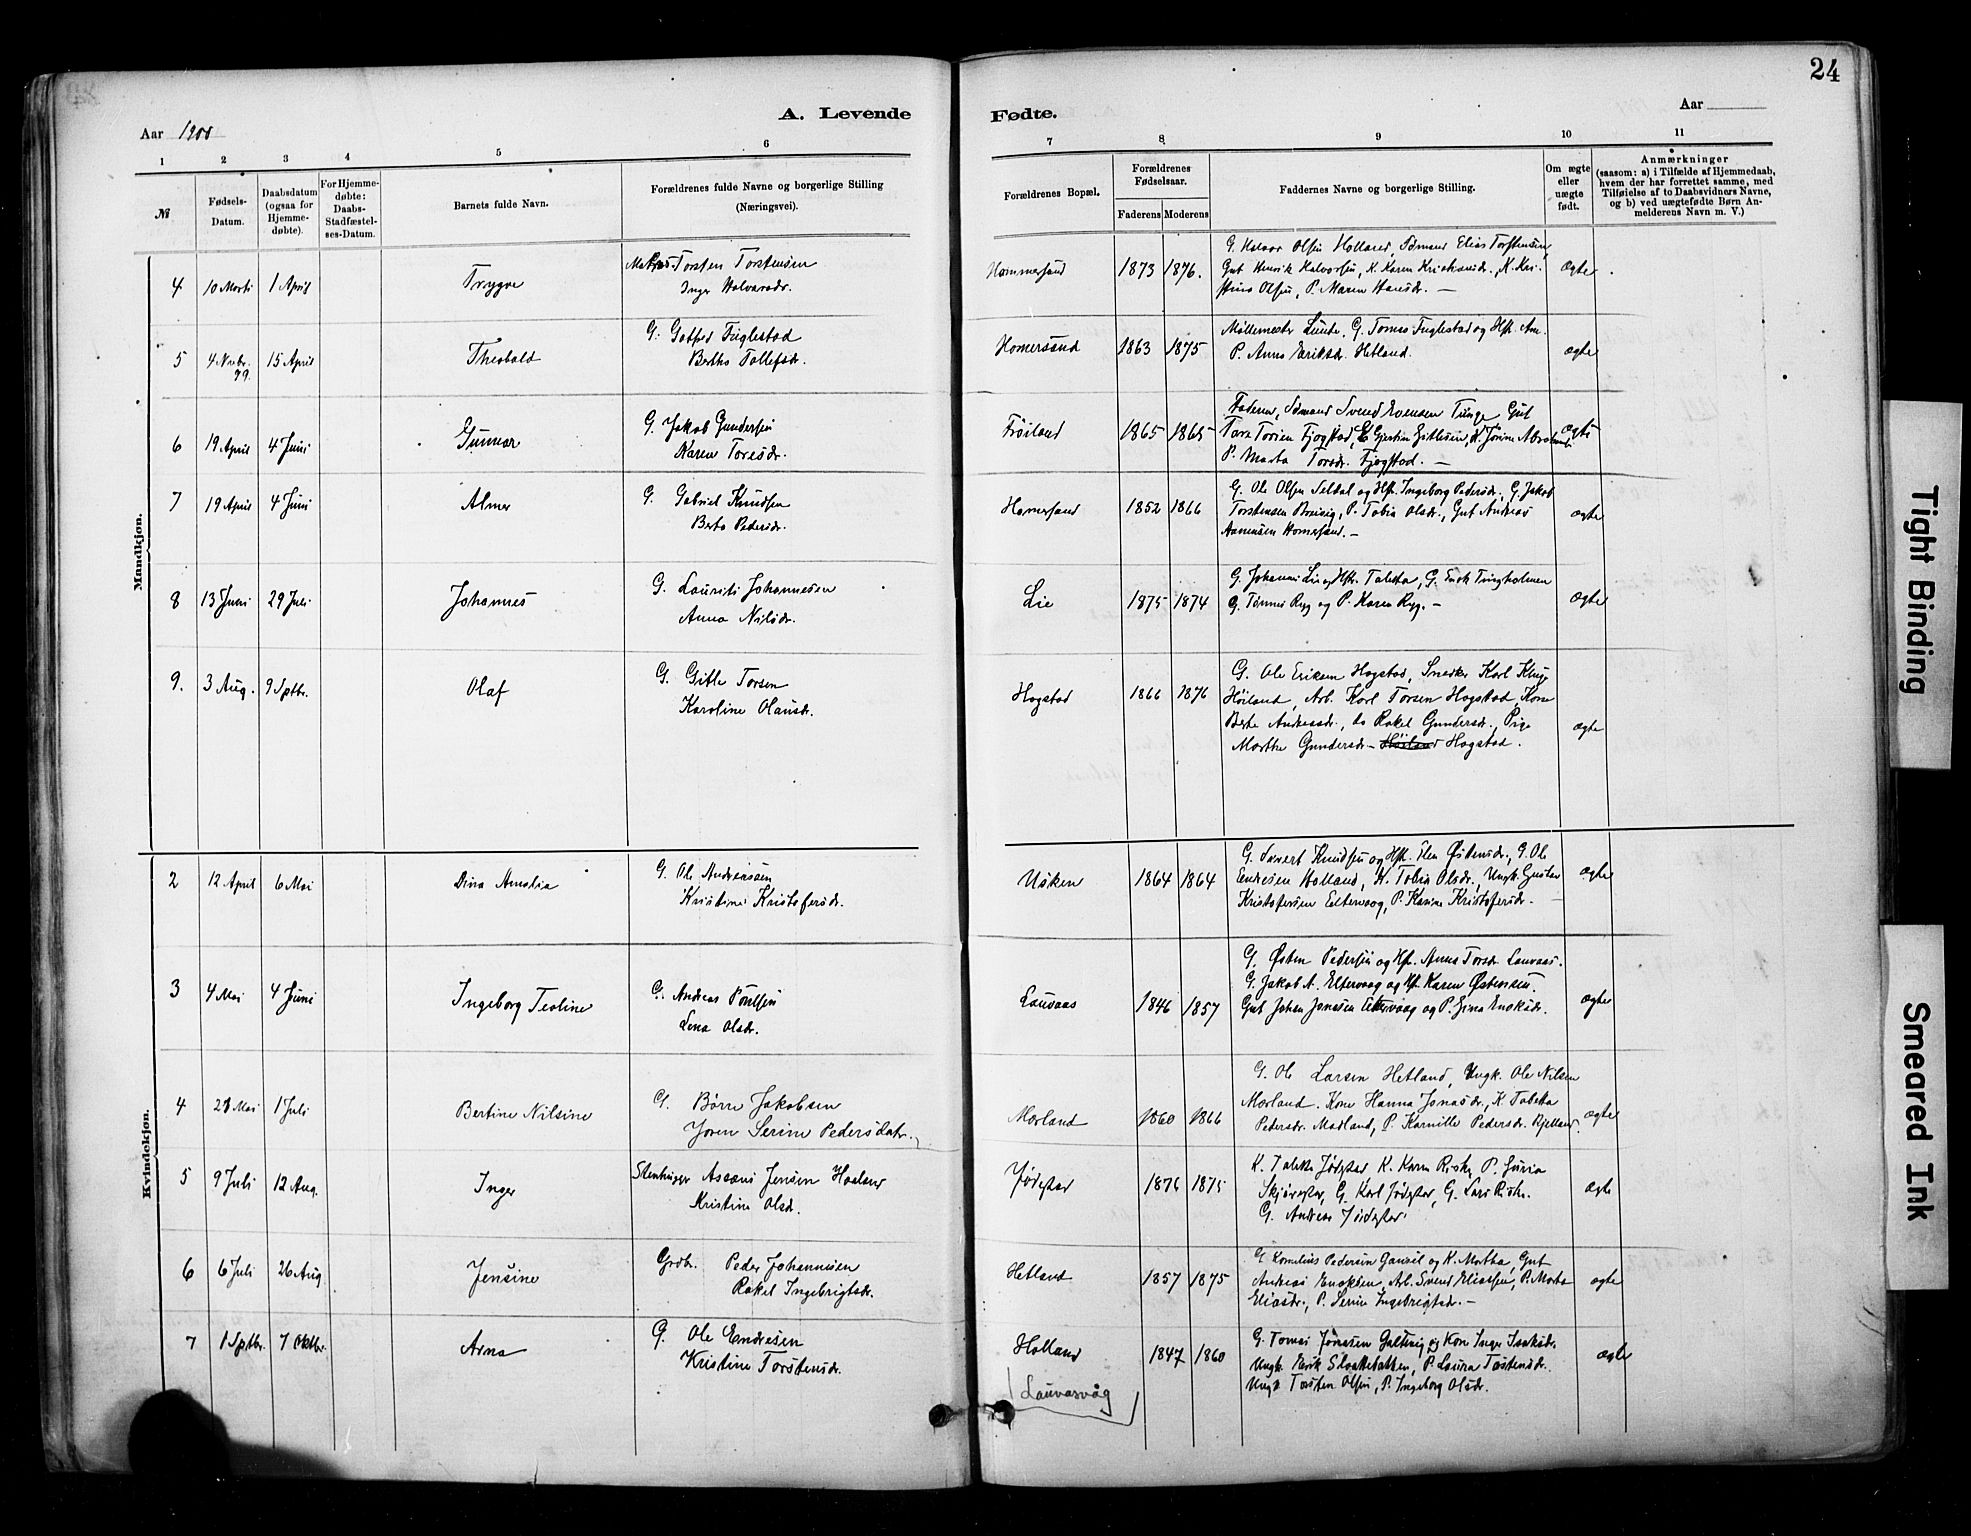 24
A. Levende Fødte.
Aar 1900
Aar
1 2 3 4 5 6 7 8 9 10 11
№
Fødsels-Datum.
Daabsdatum (ogsaa for Hjemme-døbte).
For Hjemme-døbte: Daabs-Stadfæstel-ses-Datum.
Barnets fulde Navn.
Forældrenes fulde Navne og borgerlige Stilling (Næringsvei).
Forældrenes Bopæl.
Forældrenes Fødselsaar.
Faderens Moderens
Faddernes Navne og borgerlige Stilling.
Om ægte eller uægte født.
Anmærkninger
(saasom: a) i Tilfælde af Hjemmedaab,
hvem der har forrettet samme, med
Tilføielse af to Daabsvidners Navne,
og b) ved uægtefødte Børn An-
melderens Navn m. V.)
Mandkjøn.
4 10 Marti 1 April Trygve
Torsten Torstensen
Inger Halvorsdr.
Hommersand 1873 1876.
G. Halvor Olsen Holland, Sømand Elias Torstensen,
Gut Henrik Halvorsen, K. Karen Kristiansdr., K. Kri-
stine Olsen, P. Maren Hansdr. —
ægte
5 4 Nvbr. 99. 15 April Theobald
G. Gotfred Fuglestad
Berthe Tollefsdr.
Homersand 1863 1875
Møllemester Lunde, G. Tomas Fuglestad og Hst. Ane.
P. Anna Eriksdr. Hetland.
ægte
6 19 April 4 Juni Gunnar
G. Jakob Gundersen
Karen Toresdr.
Frøiland 1865 1865
Faderen, Sømand Svend Evensen Tunge Gut
Tore Torsen Fjogstad,
P. Marta Torsdr. Fjogstad. —
ægte
7 19 April 4 Juni Almer
G. Gabriel Knudsen
Berta Pedersdr.
Homersand 1852 1866
G. Ole Olsen Seldal og Hst. Ingeborg Pedersdr., G. Jakob
Torstensen Breivig, P. Tobia Olsdr., Gut Andreas
Aanensen Homersand. —
ægte
8 13 Juni 29 Juli Johannes
G. Laurits Johannesen
Anna Nilsdr.
Lie 1875 1874
G. Johannes Lie og Hst. Tabita, G. Enok Tingholmen
G. Tønnes Ryg og P. Karen Ryg. —
ægte
9. 3 Aug. 9 Sptbr. Olaf
G. Gitle Torsen
Karoline Olausdr.
Hogstad 1866 1876
G. Ole Eriksen Hogstad, Snedker Karl Kluge
Høiland, Arb. Karl Torsen Hogstad, Kone
Berte Andreasdr., do Rakel Gundersdr., Pige
Marthe Gundersdr — Høiland Hogstad.
ægte
Kvindekjøn.
2 12 April 6 Mai Dina Amalia
G. Ole Andreassen
Kristine Kristofersdr.
Usken 1864 1864
G. Sivert Knudsen og Hst. Elen Østensdr., G. Ole
Endresen Holland, K. Tobia Olsdr., Ungk. Gustav
Kristofersen Eltervaag, P. Karine Kristofersdr. —
ægte
3 4 Mai 4 Juni Ingeborg Teoline
G. Andreas Poulsen
Lena Olsdr.
Lauvaas 1846 1857
G. Østen Pedersen og Hst. Anna Torsdr. Lauvaas.
G. Jakob A. Eltervaag og Hst. Karen Østensen.
Gut Johan Jonasen Eltervaag og P. Gina Enoksdr.
ægte
4 28 Mai 1 Juli Bertine Nilsine
G. Børre Jakobsen
Joren Serine Pedersdatr.
Mæland 1860 1866
G. Ole Larsen Hetland, Ungk. Ole Nilsen
Mæland. Kone Hanna Jonasdr., K. Tabita
Pedersdr. Madland, P. Kornille Pedersdr. Kjelland.
ægte
5 9 Juli 12 Aug. Inger
Stenhugger Assani Jensen Haaland
Kristine Olsdr.
Jødestad 1876 1875
K. Talette Jødestad K. Karen Riske, P. Juria
Skjørestad, G. Karl Jødestad, G. Lars Riske.
G. Andreas Jødestad.
ægte
6 6 Juli 26 Aug Jensine
Grdbr. Peder Johannesen
Rakel Ingebrigtsdr.
Hetland 1857 1875
G. Kornelius Pedersen Gausel og K. Martha, Gut
Andreas Enoksen, Arb. Svend Eliassen, P. Marta
Eliasdr., P. Serine Ingebrigtsdr. —
ægte
7 1 Sptbr. 7 Oktbr. Arna
G. Ole Endresen
Kristine Torstensdr.
Holland 1847 1860
(Lauvasvåg)
G. Tomas Jonasen Galtevig og Kone Inger Isaksdr.
Ungk. Eirik Slaattebakken, P. Laura Tostensdr.
Ungk Torsten Olsen, P. Ingeborg Olsdr.
ægte
Tight Binding
Smeared Ink